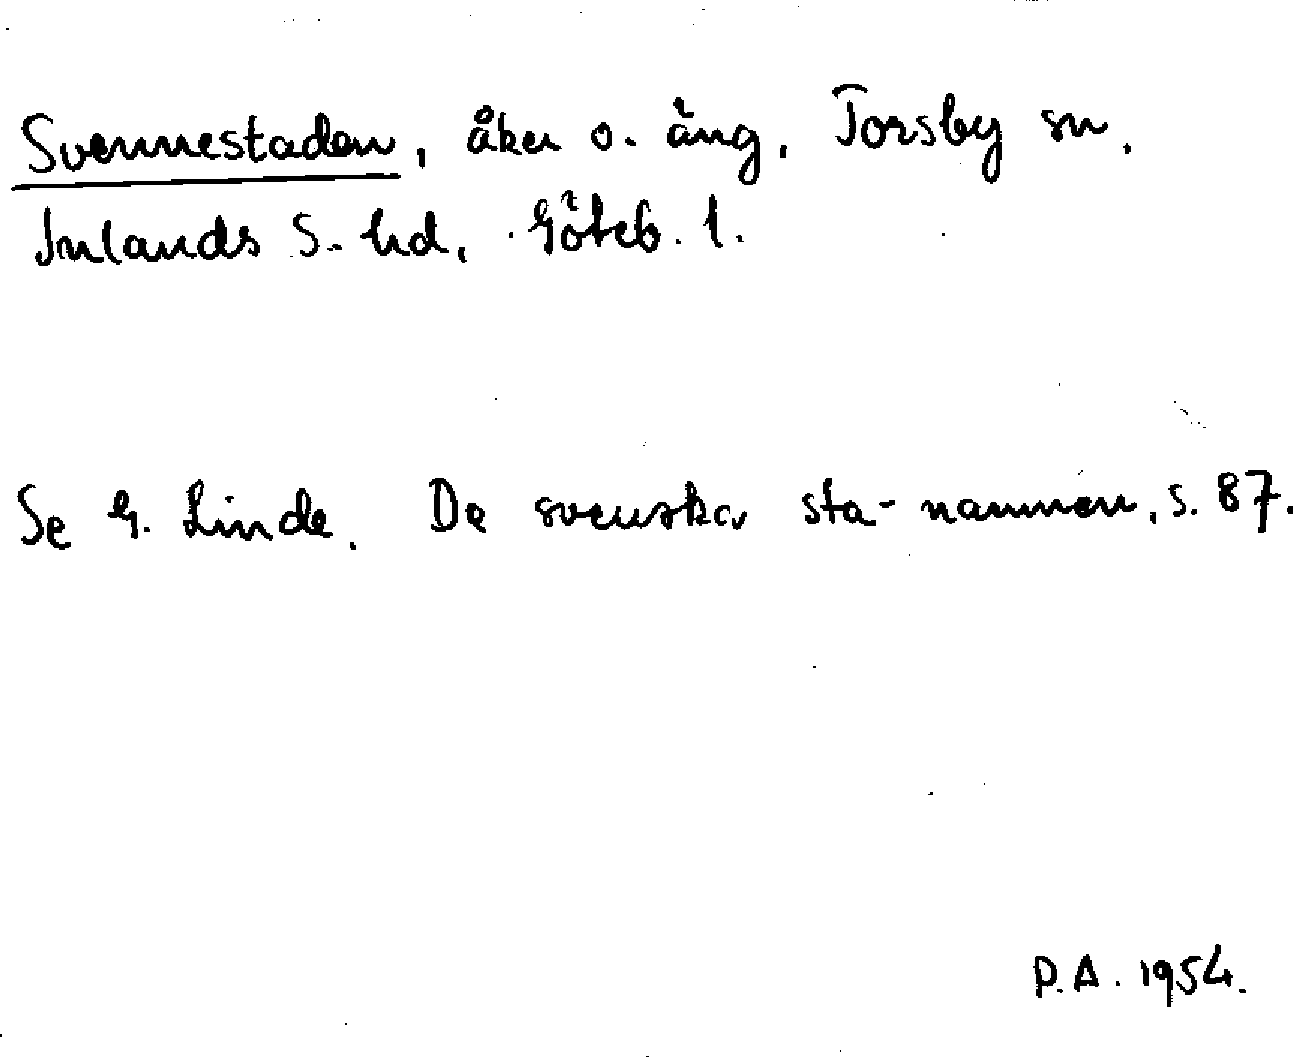 Svennestaden, åker o. äng, Torsby sn.
Inlands S. hd, Göteb. l.
Se G. Linde. De svenska sta-namnen, s. 87.
D.A. 1954.